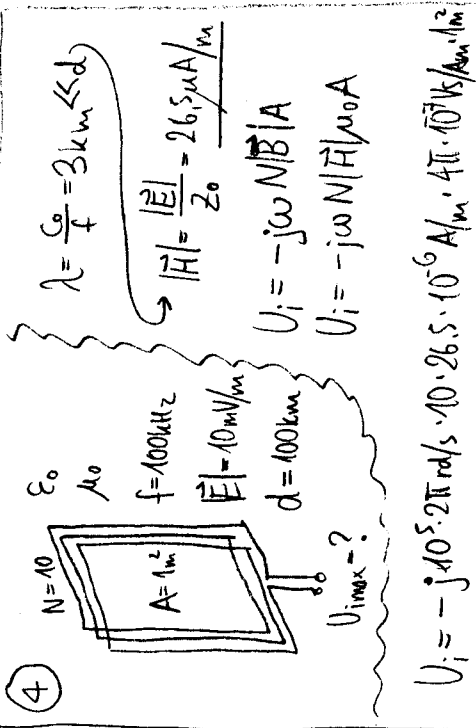 4
N=10
A=1m²
Uimax=?
ε₀
μ₀
f=100kHz
|E⃗|=10mV/m
d=100km
λ=c₀/f=3km≪d
|H⃗|=|E⃗|/Z₀=26,5μA/m
Ui=-jωN|B⃗|A
Ui=-jωN|H⃗|μ₀A
Ui=-j10⁵·2π rd/s·10·26.5·10⁻⁶A/m·4π·10⁻⁷Vs/Am·1m²